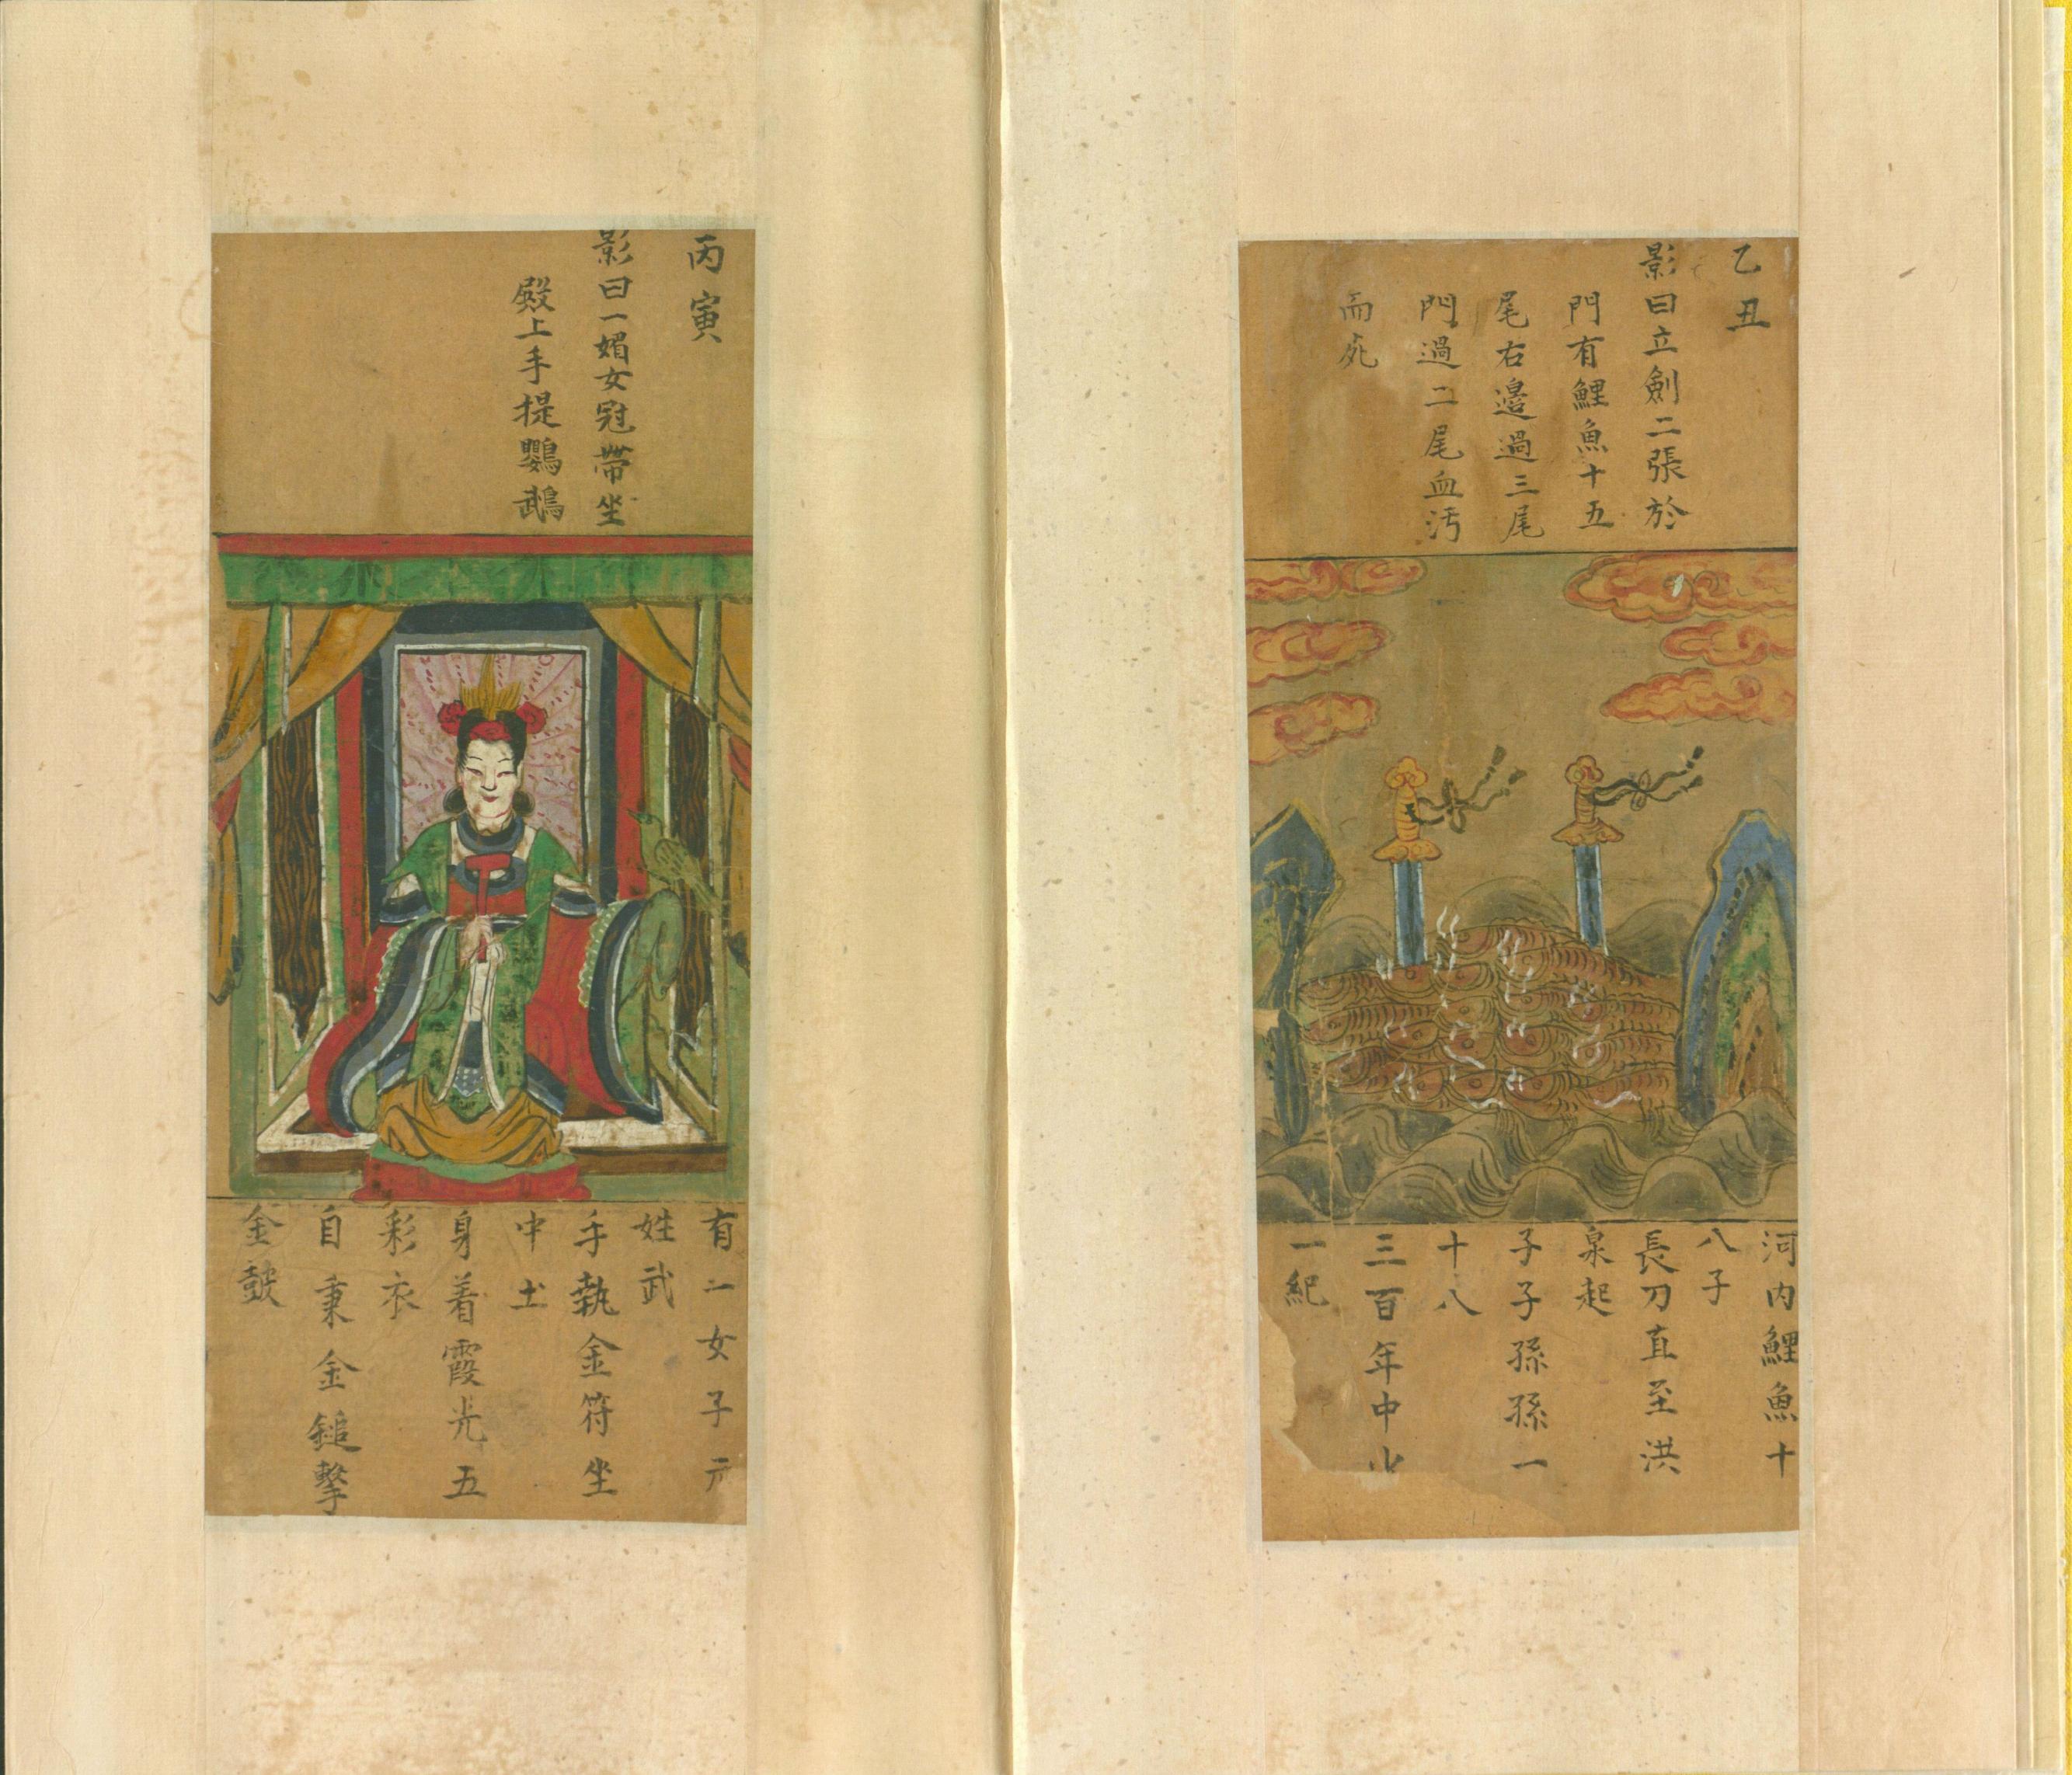 乙丑
影曰立劍二張於
門有鯉魚十五
尾右邊過三尾
門過二尾血污
而死
河內鯉魚十
八子
長刀直至洪
泉起
子子孫孫一
十八
三百年中
一紀
丙寅
影曰一媚女冠帶坐
殿上手提鸚鵡
有一女子
姓武
手執金符坐
中土
身着霞光五
彩衣
自秉金鎚擊
金鼓